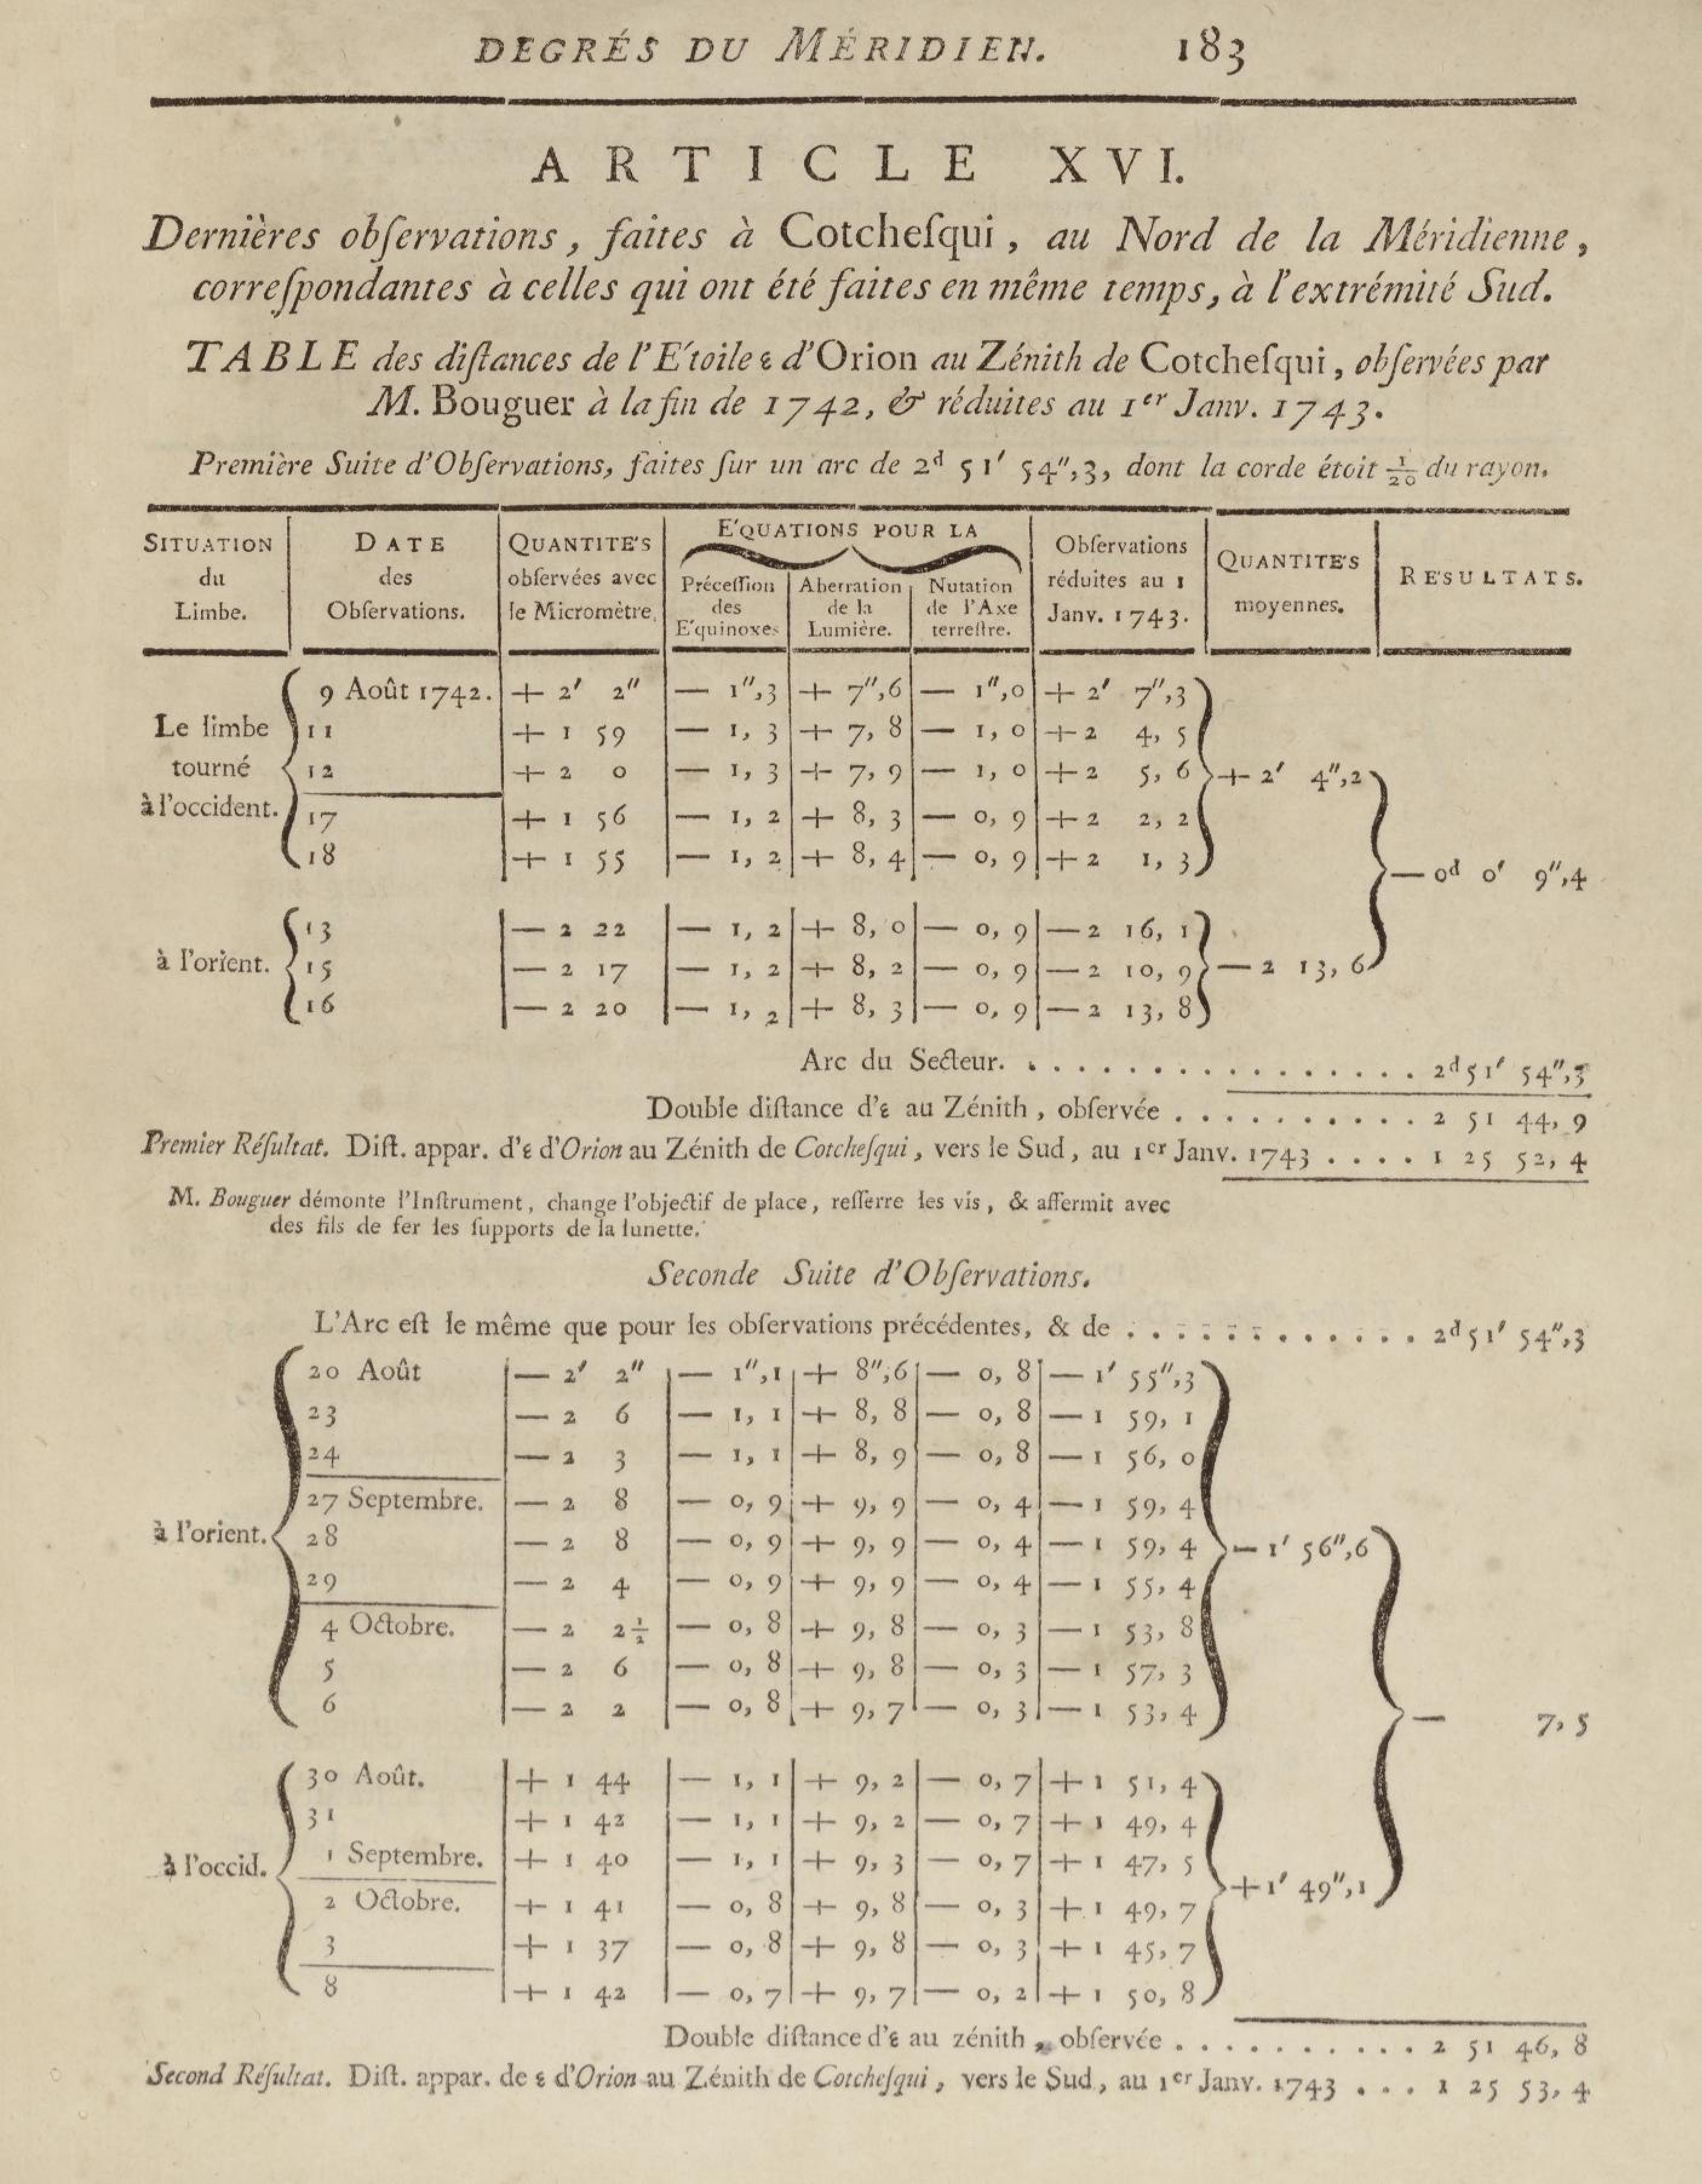 DEGRÉS DU MÉRIDIEN. 183
ARTICLE XVI.
Dernières obſervations, faites à Cotcheſqui, au Nord de la Méridienne,
correſpondantes à celles qui ont été faites en même temps, à l'extrémité Sud.
TABLE des diſtances de l'E'toile ε d'Orion au Zénith de Cotcheſqui, obſervées par
M. Bouguer à la fin de 1742, & réduites au 1er Janv. 1743.
Première Suite d'Obſervations, faites ſur un arc de 2d 51' 54",3, dont la corde étoit 1/20 du rayon.
SITUATION du Limbe. | DATE des Obſervations. | QUANTITE'S obſervées avec le Micromètre. | E'QUATIONS POUR LA Préceſſion des E'quinoxes | Aberration de la Lumière. | Nutation de l'Axe terreſtre. | Obſervations réduites au 1 Janv. 1743. | QUANTITE'S moyennes. | RE'SULTATS.
Le limbe tourné à l'occident.
9 Août 1742. + 2' 2" — 1",3 + 7",6 — 1",0 + 2' 7",3
11 + 1 59 — 1, 3 + 7, 8 — 1, 0 + 2 4, 5
12 + 2 0 — 1, 3 + 7, 9 — 1, 0 + 2 5, 6 + 2' 4",2
17 + 1 56 — 1, 2 + 8, 3 — 0, 9 + 2 2, 2
18 + 1 55 — 1, 2 + 8, 4 — 0, 9 + 2 1, 3
— 0d 0' 9",4
à l'orient.
13 — 2 22 — 1, 2 + 8, 0 — 0, 9 — 2 16, 1
15 — 2 17 — 1, 2 + 8, 2 — 0, 9 — 2 10, 9 — 2 13, 6
16 — 2 20 — 1, 2 + 8, 3 — 0, 9 — 2 13, 8
Arc du Secteur. . . . . . . . . . . . . . . . . 2d 51' 54",3
Double diſtance d'ε au Zénith, obſervée . . . . . . . . . . 2 51 44, 9
Premier Réſultat. Diſt. appar. d'ε d'Orion au Zénith de Cotcheſqui, vers le Sud, au 1er Janv. 1743 . . . . 1 25 52, 4
M. Bouguer démonte l'Inſtrument, change l'objectif de place, reſſerre les vis, & affermit avec
des fils de fer les ſupports de la lunette.
Seconde Suite d'Obſervations.
L'Arc eſt le même que pour les obſervations précédentes, & de . . . . . . . . . . . . 2d 51' 54",3
20 Août — 2' 2" — 1",1 + 8",6 — 0, 8 — 1' 55",3
23 — 2 6 — 1, 1 + 8, 8 — 0, 8 — 1 59, 1
24 — 2 3 — 1, 1 + 8, 9 — 0, 8 — 1 56, 0
27 Septembre. — 2 8 — 0, 9 + 9, 9 — 0, 4 — 1 59, 4
à l'orient. 28 — 2 8 — 0, 9 + 9, 9 — 0, 4 — 1 59, 4 — 1' 56",6
29 — 2 4 — 0, 9 + 9, 9 — 0, 4 — 1 55, 4
4 Octobre. — 2 2 1/2 — 0, 8 + 9, 8 — 0, 3 — 1 53, 8
5 — 2 6 — 0, 8 + 9, 8 — 0, 3 — 1 57, 3
6 — 2 2 — 0, 8 + 9, 7 — 0, 3 — 1 53, 4
— 7, 5
30 Août. + 1 44 — 1, 1 + 9, 2 — 0, 7 + 1 51, 4
31 + 1 42 — 1, 1 + 9, 2 — 0, 7 + 1 49, 4
à l'occid. 1 Septembre. + 1 40 — 1, 1 + 9, 3 — 0, 7 + 1 47, 5
+ 1' 49",1
2 Octobre. + 1 41 — 0, 8 + 9, 8 — 0, 3 + 1 49, 7
3 + 1 37 — 0, 8 + 9, 8 — 0, 3 + 1 45, 7
8 + 1 42 — 0, 7 + 9, 7 — 0, 2 + 1 50, 8
Double diſtance d'ε au zénith, obſervée . . . . . . . . . . 2 51 46, 8
Second Réſultat. Diſt. appar. de ε d'Orion au Zénith de Cotcheſqui, vers le Sud, au 1er Janv. 1743 . . . 1 25 53, 4